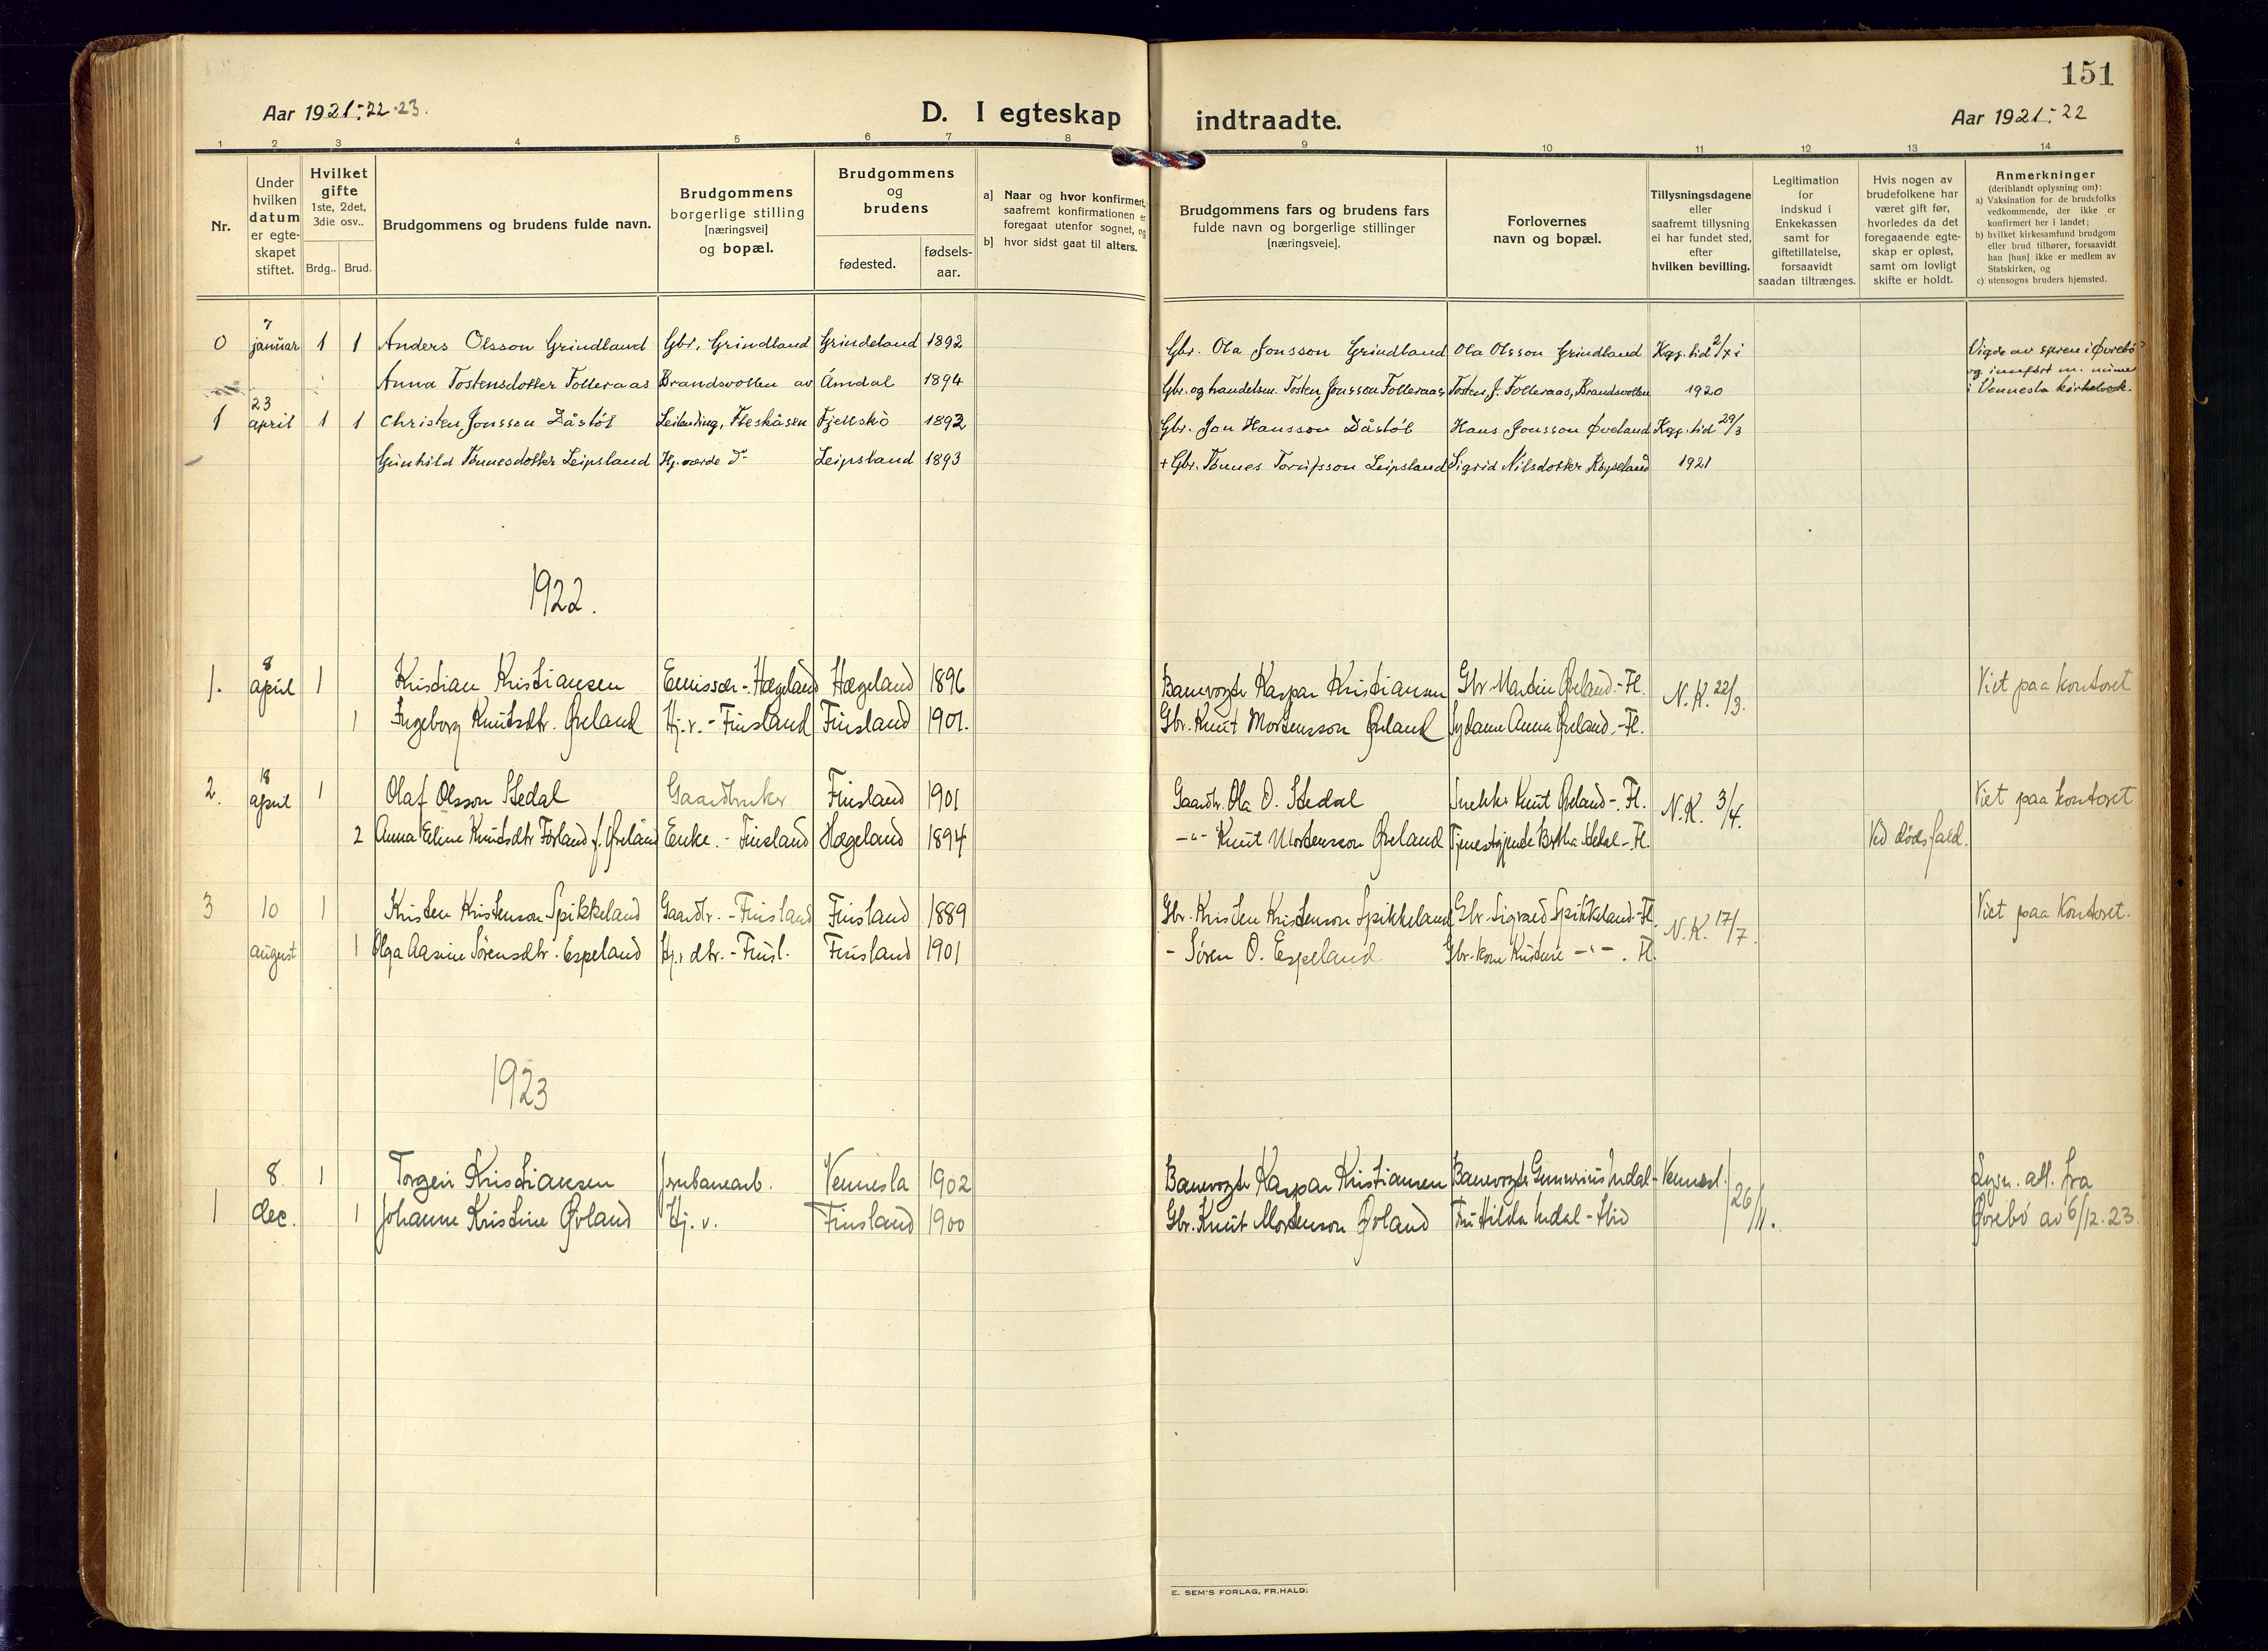 151
Aar 1921-22-23.
D. I egteskap indtraadte.
Aar 1921-22
1 2 3 4 5 6 7 8 9 10 11 12 13 14
Nr.
Under hvilken datum er egte-skapet stiftet.
Hvilket gifte
1ste, 2det, 3die osv..
Brdg.. Brud.
Brudgommens og brudens fulde navn.
Brudgommens borgerlige stilling [næringsvei] og bopæl.
Brudgommens og brudens
fødested. fødsels-aar.
a] Naar og hvor konfirmert, saafremt konfirmationen er foregaat utenfor sognet, og
b] hvor sidst gaat til alters.
Brudgommens fars og brudens fars fulde navn og borgerlige stillinger [næringsveie].
Forlovernes navn og bopæl.
Tillysningsdagene eller saafremt tillysning ei har fundet sted, efter hvilken bevilling.
Legitimation for indskud i Enkekassen samt for giftetillatelse, forsaavidt saadan tiltrænges.
Hvis nogen av brudefolkene har været gift før, hvorledes da det foregaaende egte-skap er opløst, samt om lovligt skifte er holdt.
Anmerkninger
(deriblandt oplysning om):
a) Vaksination for de brudefolks vedkommende, der ikke er konfirmert her i landet;
b) hvilket kirkesamfund brudgom eller brud tilhører, forsaavidt han [hun] ikke er medlem av Statskirken, og
c) utensogns bruders hjemsted.
0 7 januar 1 1 Anders Olsson Grindland Gbr. Grindland Grindeland 1892 Gbr. Ola Jonsson Grindland Ola Olsson Grindland Kgg. tid 2/xi Vigde av spren i Øvrebö
og innført m. numer
Anna Tostensdotter Folleraas Brandsvollen av Åmdal 1894 Gbr. og handelsm. Tosten Jonsson Folleraas Tosten J. Folleraas, Brandsvollen 1920 i Vennesla kirkebok.
1 23 april 1 1 Christen Jonsson Dåstöl Leilending, Fleskåsen Fjellskö 1892 Gbr. Jon Hansson Dåstöl Hans Jonsson Øveland Kgg. tid 29/3
Gunhild Tönnesdotter Leipsland Hj. værde do Leipsland 1893 + Gbr. Tönnes Torjusson Leipsland Sigrid Nilsdotter Röyseland 1921
1922.
1. 8 april 1 Kristian Kristiansen Emissær - Hægeland Hægeland 1896 Banevogter Kaspar Kristiansen Gbr. Martin Øveland - Fl. N. K. 22/3. Viet paa kontoret
1 Ingeborg Knutsdtr. Øveland Hj. v. - Finsland Finsland 1901. Gbr. Knut Mortensson Øveland Sydame Anna Øveland - Fl.
2. 18 april 1 Olaf Olsson Stedal Gaardbruker Finsland 1901 Gaardbr. Ola O. Stedal Snekker Knut Øveland - Fl. N. K. 3/4. Viet paa kontoret
2 Anna Eline Knutsdtr Førland f. Øveland Enke. - Finsland Hægeland 1894 -"- Knut Mortensson Øveland Tjenestgjende Bertha Stedal - Fl. Ved dødsfald.
3 10 1 Kristen Kristenson Spikkeland Gaardbr. - Finsland Finsland 1889 Gbr. Kristen Kristenson Spikkeland Gbr. Sigvard Spikkeland - Fl. N. K. 17/7. Viet paa kontoret.
august 1 Olga Aasine Sørensdtr. Espeland Hj. dtr. - Finsl. Finsland 1901 - Søren O. Espeland Gbr. kone Kristine -"- . Fl.
1923
8. 1 Torgeir Kristiansen Jernbanearb. Vennesla 1902 Banevogter Kaspar Kristiansen Banevogter Gunerius Indal - Vennesl. 26/11. Lysn. att. fra
1 dec. 1 Johanne Kristine Øvland Hj. v. Finsland 1900 Gbr. Knut Mortenson Øvland Fru Hilda Indal - Ibid Øvrebö av 6/12. 23.
E. SEM'S FORLAG, FR.HALD.